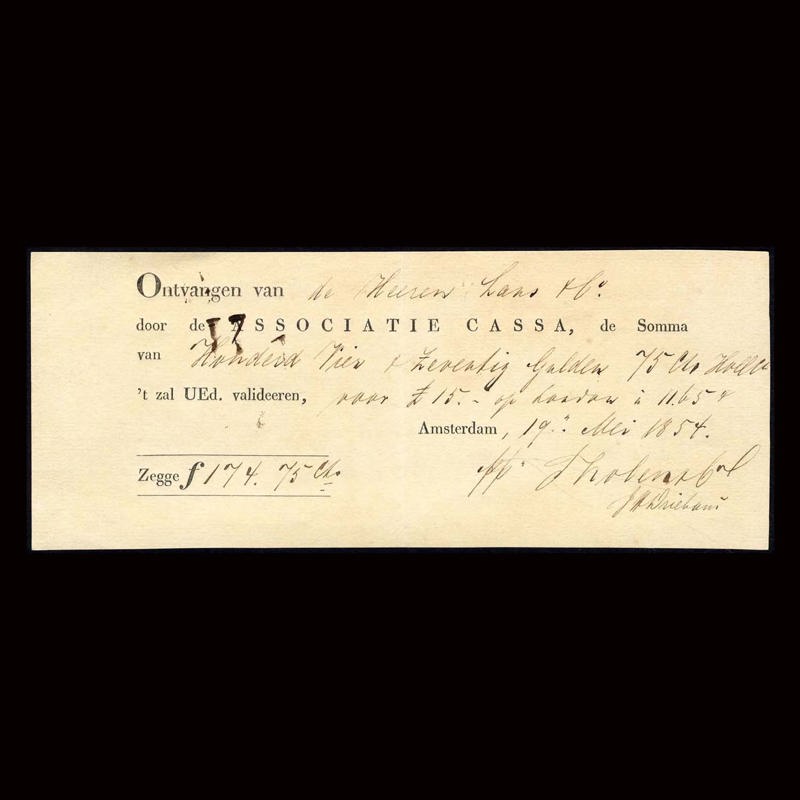 Ontvangen van de Heeren Laus & Co.
door de ASSOCIATIE CASSA, de Somma
van Honderd Vier & Zeventig Gulden 75 Cts
't zal UEd. valideeren, voor £ 15.- op London à 11.65
Amsterdam, 19 Mei 1854.
Zegge ƒ 174. 75 Cts